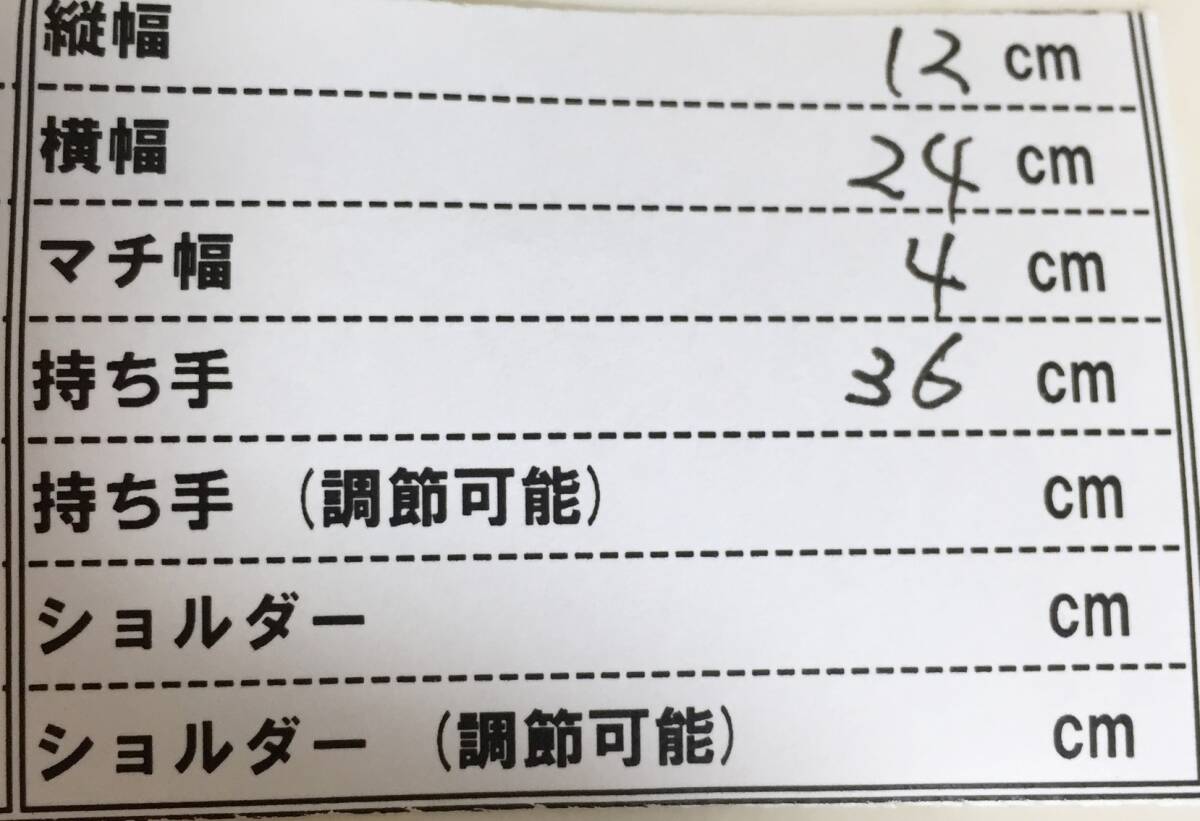 縦幅 12 cm
横幅 24 cm
マチ幅 4 cm
持ち手 36 cm
持ち手 (調節可能) cm
ショルダー cm
ショルダー (調節可能) cm